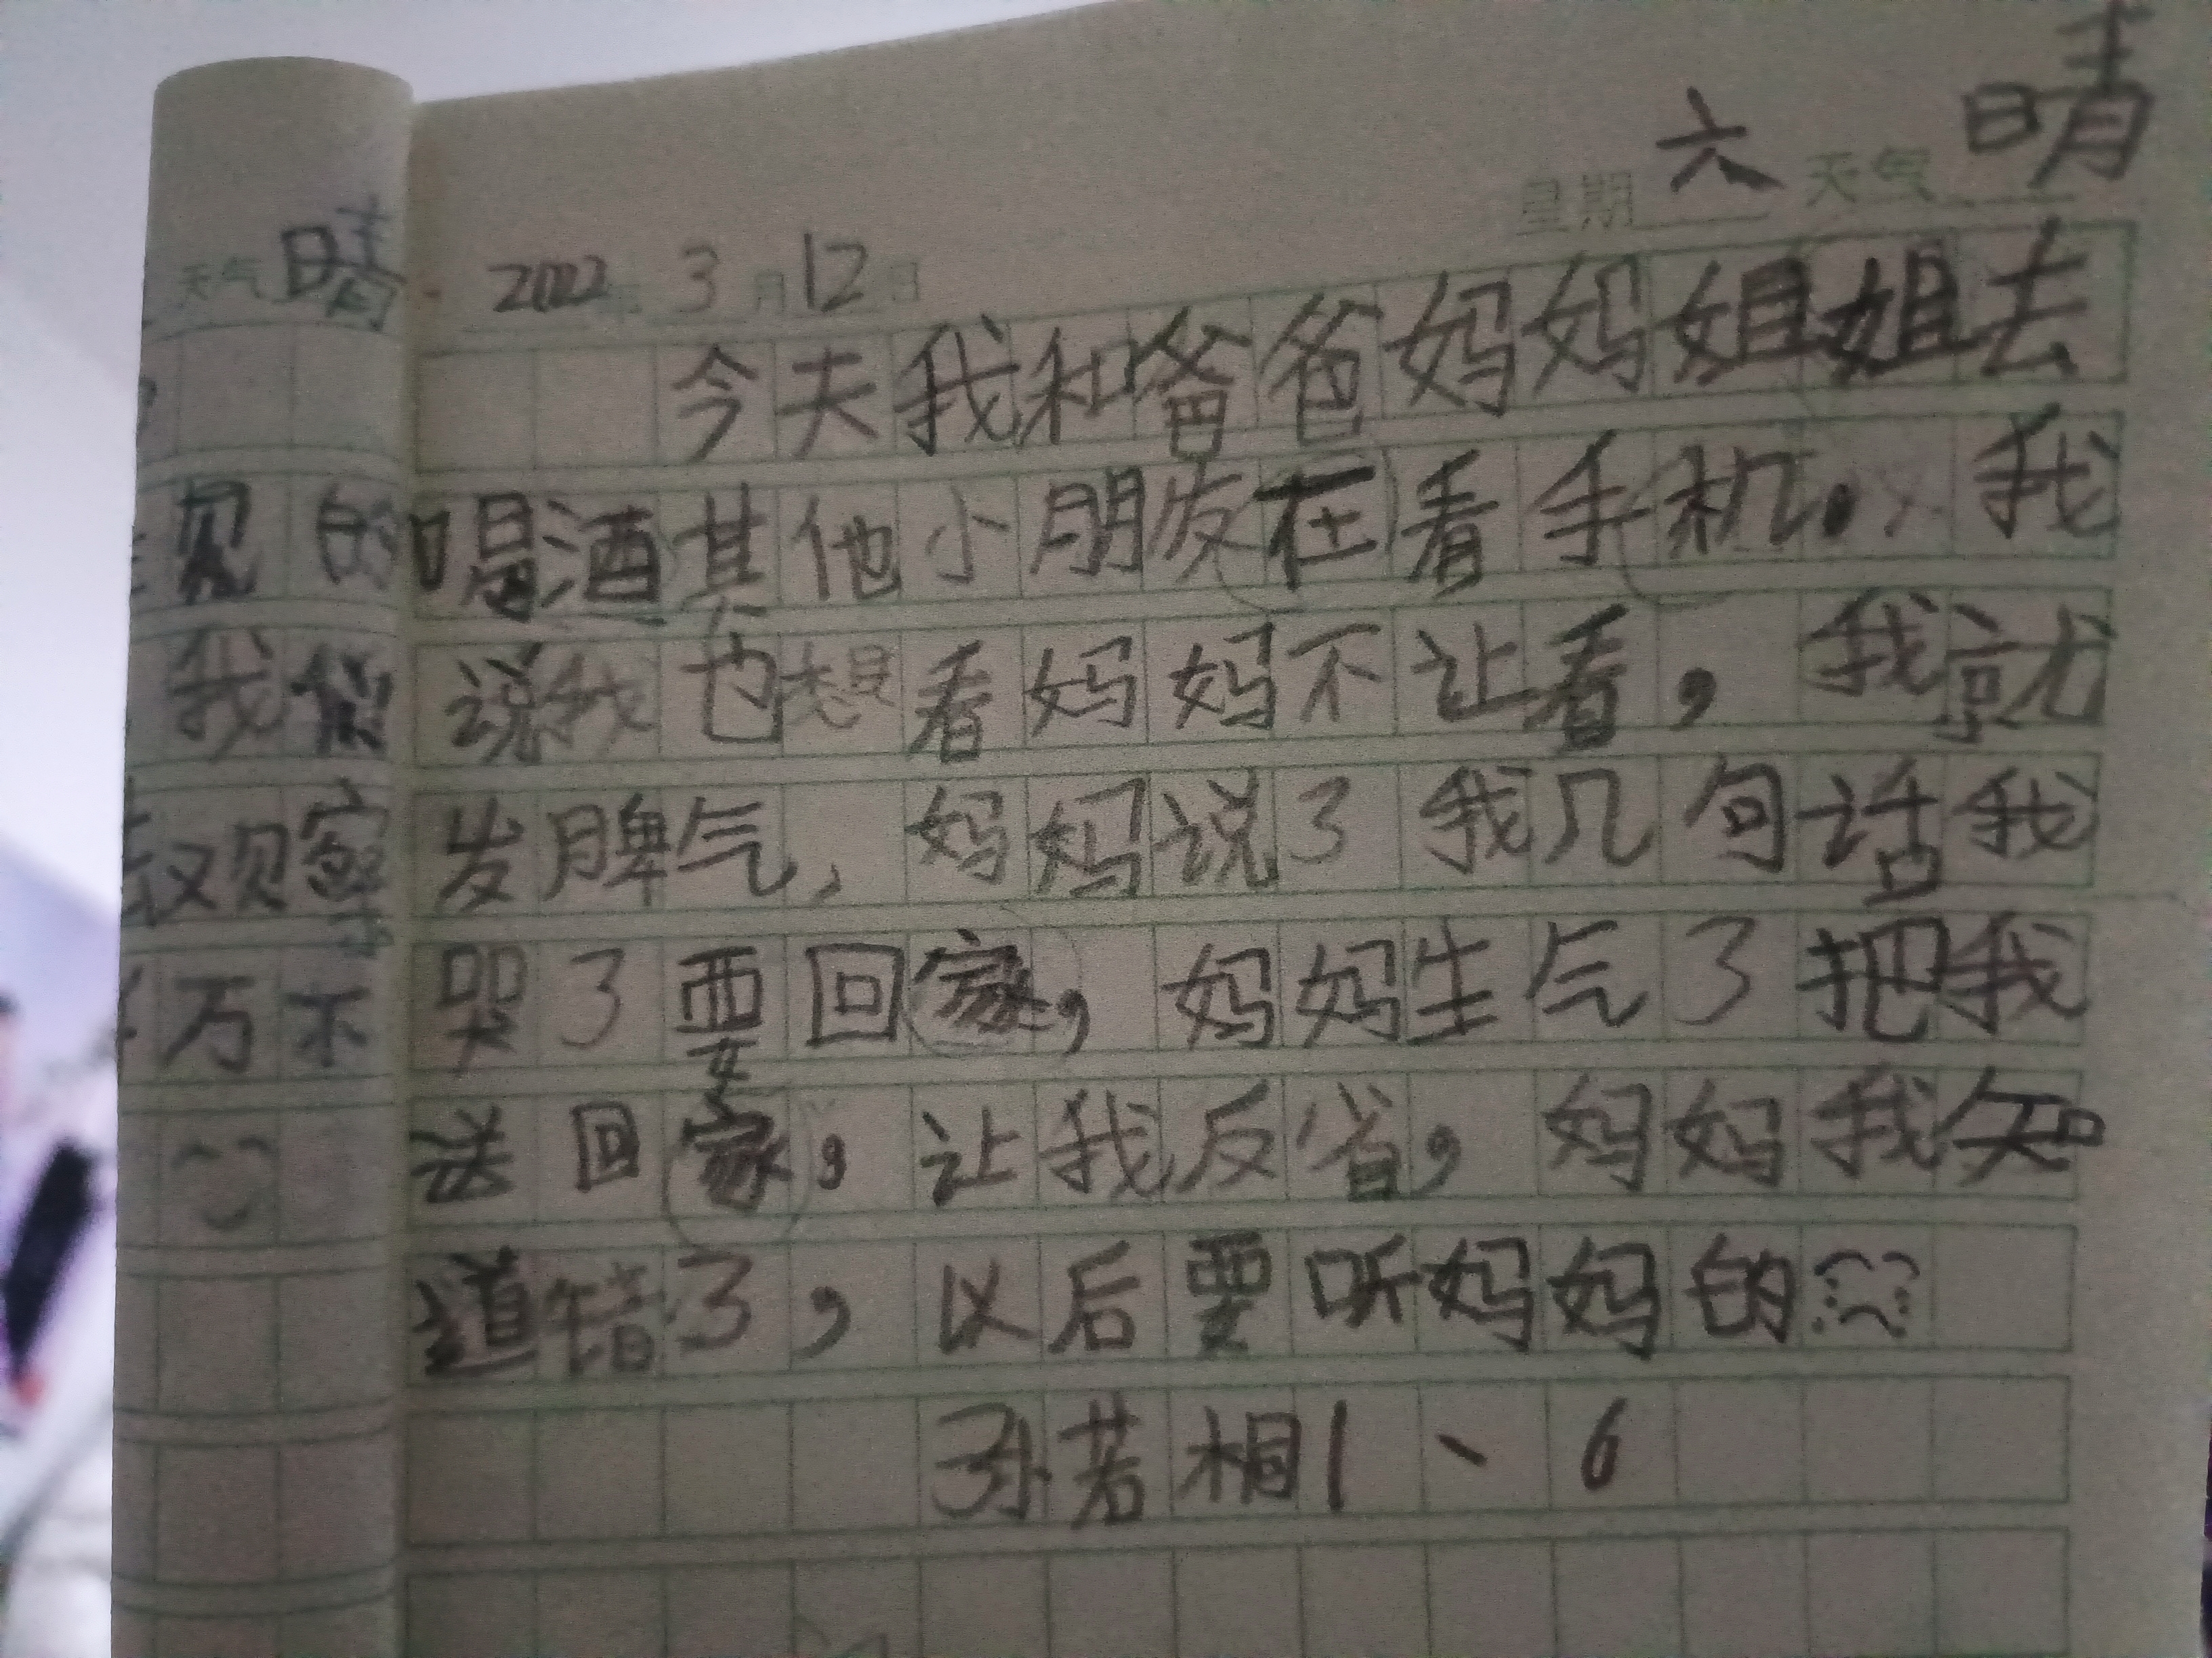 星期六 天气晴
2022年3月12日
今天我和爸爸妈妈姐姐去
喝酒其他小朋友在看手机。我
说我也想看妈妈不让看，我就
发脾气，妈妈说了我几句话我
哭了要回家，妈妈生气了把我
送回家，让我反省，妈妈我知
道错了，以后要听妈妈的
孙若相1、6
天气晴
见的
我
观察
万不